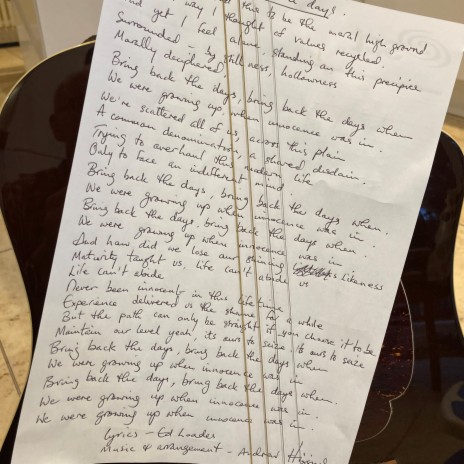 days.
way, thought this to be the moral high ground
and yet I feel of values recycled.
Surrounded alone, standing on this precipice
Morally deciphered by stillness, hollowness
Bring back the days, bring back the days when
We were growing up, when innocence was in.
We're scattered all of us, across this plain
A common denominator, a shared disdain.
Trying to overhaul this modern life
Only to face an indifferent mind.
Bring back the days, bring back the days when.
We were growing up when innocence was in.
Bring back the days, bring back the days when.
We were growing up when innocence was in
And how did we lose our shining likeness
Maturity taught us, life can't abide us
Life can't abide.
Never been innocent, in this lifetime
Experience delivered us the shame for a while
But the path can only be straight if you choose it to be
Maintain our level yeah, its ours to seize its ours to seize
Bring back the days, bring back the days when
We were growing up when innocence was in
Bring back the days, bring back the days when.
We were growing up when innocence was in.
We were growing up when innocence was in.
Lyrics - Ed Loades
Music & arrangement - Andrew